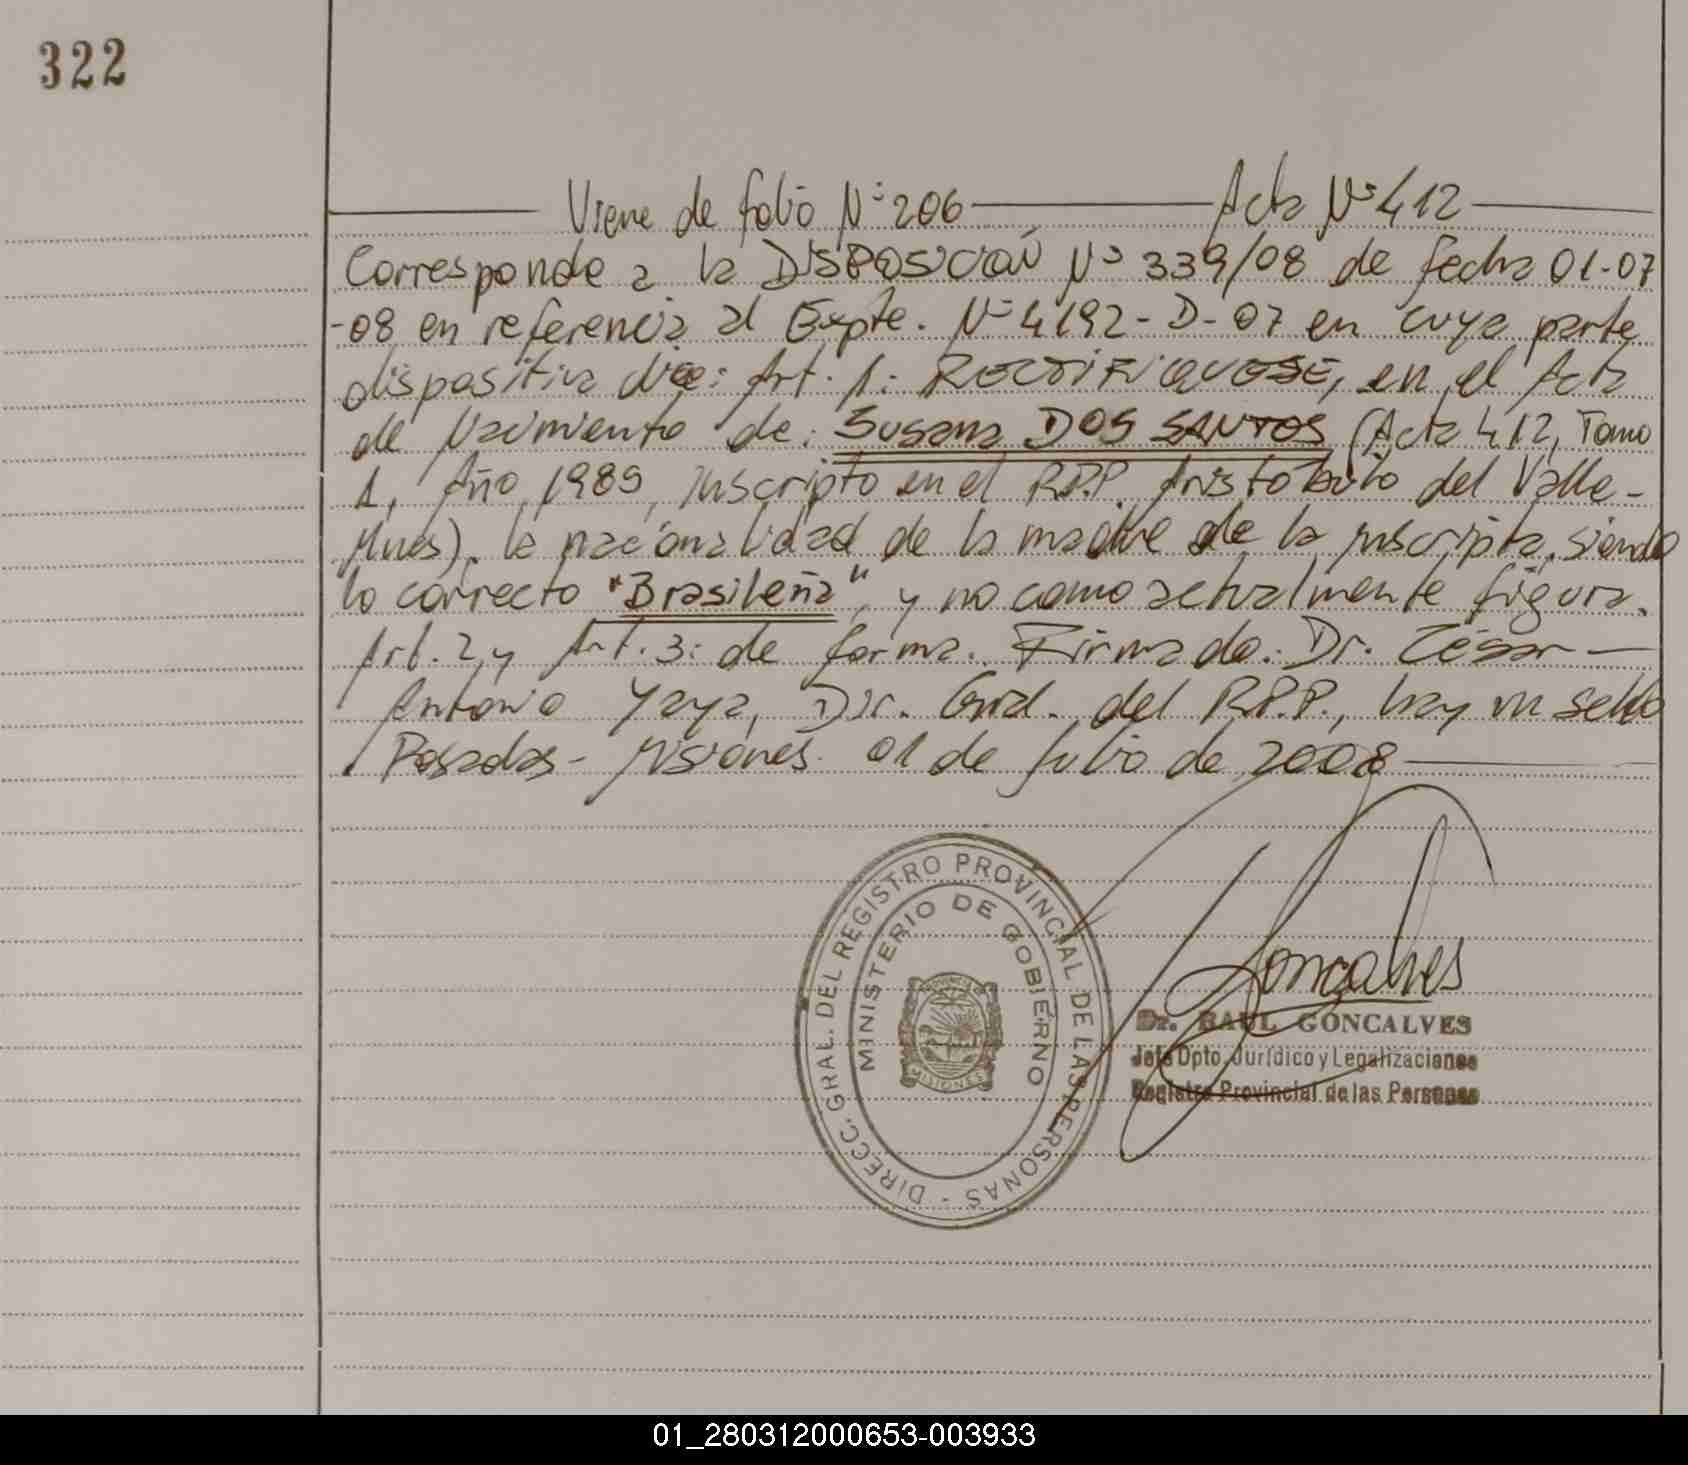 322
Viene de folio Nº 206 Acta Nº 412
Corresponde a la DISPOSICIÓN Nº 339/08 de fecha 01-07
-08 en referencia al Expte. Nº 4192-D-07 en cuya parte
dispositiva dice: Art. 1: RECTIFIQUESE, en el Acta
de Nacimiento de: Susana DOS SANTOS (Acta 412, Tomo
1, Año 1989, inscripto en el R.P.P. Aristóbulo del Valle-
Mnes). la nacionalidad de la madre de la inscripta, siendo
lo correcto "Brasileña", y no como actualmente figura.
Art. 2 y Art. 3: de forma. Firmado: Dr. César
Antonio Yaya, Dir. Gral. del R.P.P., hay un sello
Posadas - Misiones. 01 de Julio de 2008
DIRECC. GRAL. DEL REGISTRO PROVINCIAL DE LAS PERSONAS -
MINISTERIO DE GOBIERNO
MISIONES
Goncalves
Dr. RAUL GONCALVES
Jefe Dpto. Jurídico y Legalizaciones
Registro Provincial de las Personas
01_280312000653-003933